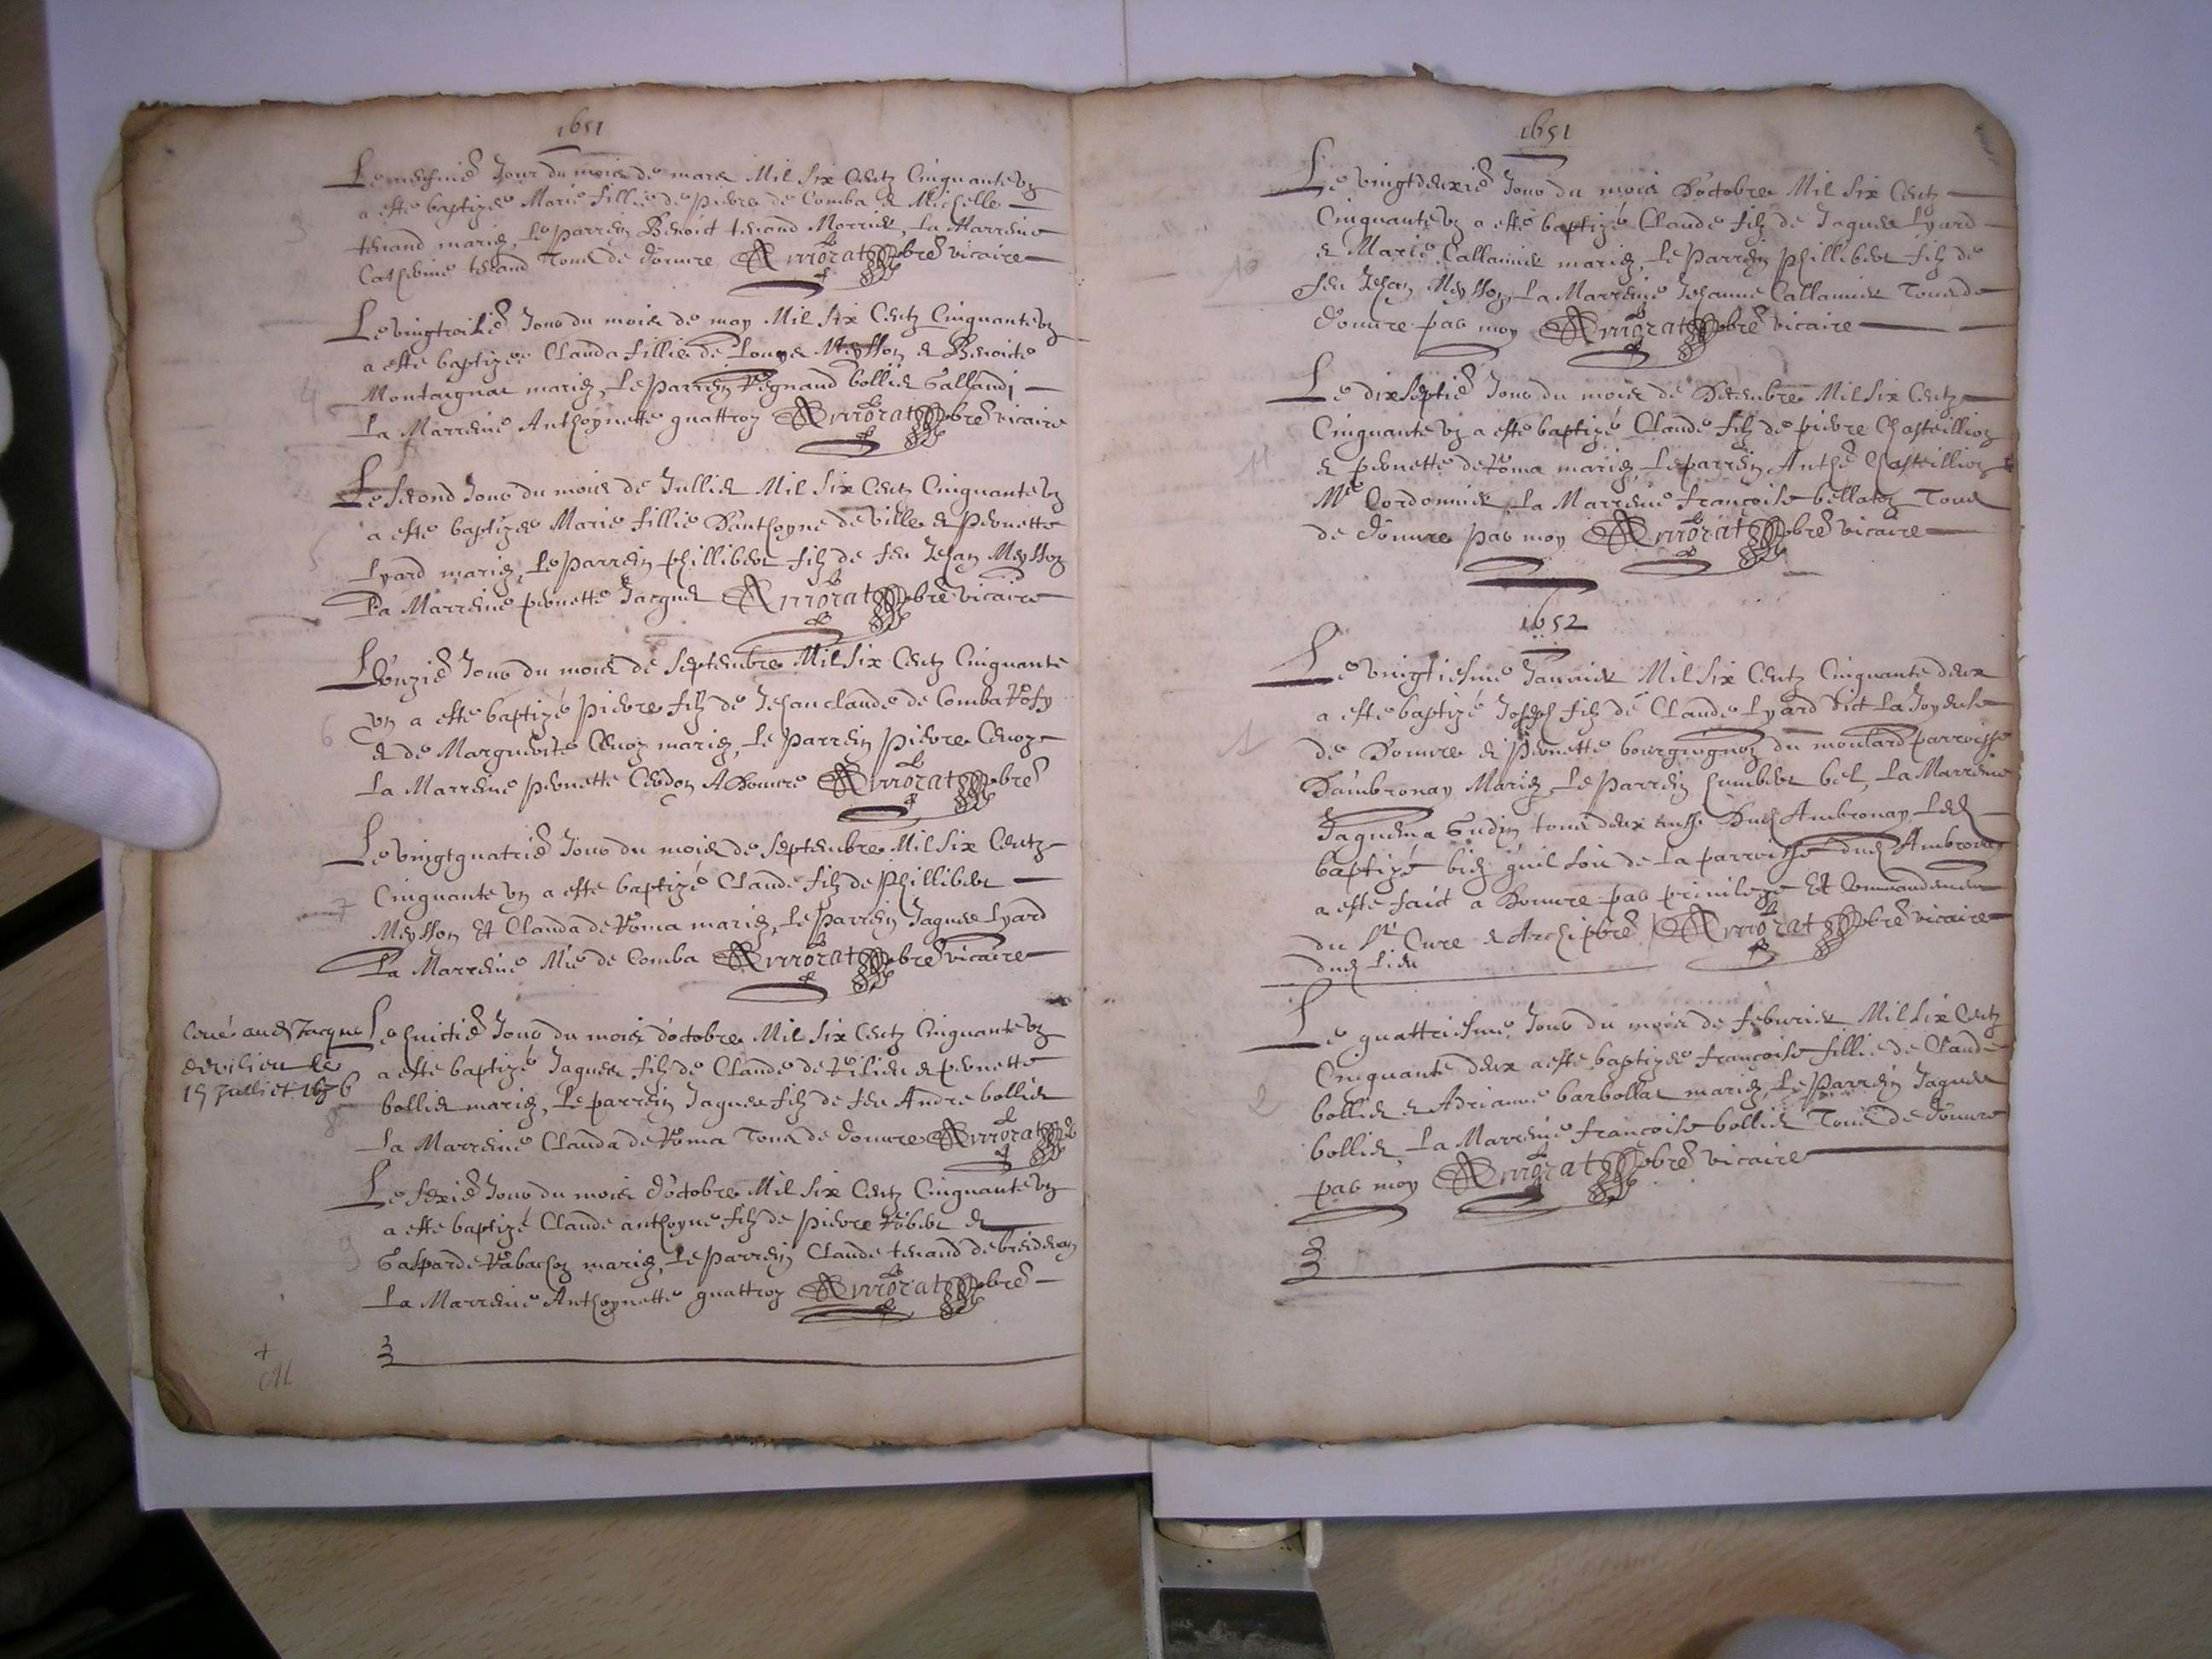 1651
Le Jour du mois de mars Mil six Centz Cinquante vng
3
a este baptizée Marie fillie de pierre de Comba & Michelle
tenand mariez, Le parrein Benoict tenand Morrier, La Marreine
Catherine tenand Tous de douure pbre vicaire
Le vingtroisie Jour du mois de may Mil Six Centz Cinquante vng
a este baptizée Clauda fillie de Louys Meysson & Benoicte
4
Montaignat mariez, Le Parrein Regnaud bollier
La Marreine Anthoynette quattroz pbre vicaire
Le second Jour du mois de Jullet Mil Six Centz Cinquante vng
a este baptizée Marie fillie d'anthoyne de ville & pernette
5
Lyard mariez, Le parrein phillibert filz de feu Jehan Meysson
La Marreine pernette Jacquet pbre vicaire
L'onzie Jour du mois de septembre Mil Six Centz Cinquante
vn a este baptizé pierre filz de Jehan claude de Comba Rosy
6
& de Marguerite Cenoz mariez, Le parrein pierre Cenoz
La Marreine pernette Cerdon A Douure pbre
Le vingtquatrie Jour du mois de septembre Mil Six Centz
Cinquante vn a este baptizé Claude filz de Phillibert
7
Meysson Et Clauda de Roma mariez, Le Parrein Jaques Lyard
La Marreine Mie de Comba pbre vicaire
Le huictie Jour du mois d'octobre Mil Six Centz Cinquante vng
Jacque
de Rilieu le
15 Julliet 1676
a este baptizé Jaques filz de Claude de Rilieu & pernette
bollier mariez, Le parrein Jaques filz de feu Andre bollier
8
La Marreine Clauda de Roma Tous de douure
Le sexie Jour du mois d'octobre Mil Six Centz Cinquante vng
a este baptizé Claude anthoyne filz de pierre Robert &
9
Gasparde Rabachoz mariez, Le Parrein Claude tenand
La Marreine Anthoynette quattroz pbre
M
1651
Le vingtdeuxie Jour du mois d'octobre Mil Six Centz
Cinquante vng a esté baptizé Claude filz de Jaques Lyard
10
& Marie Callamier mariez, Le Parrein phillibert filz de
feu Jehan Meysson, La Marreine Jehanne Callamier Tous de
douure par moy pbre vicaire
Le dixseptie Jour du mois de Decembre Mil Six Centz
Cinquante vng a este baptizé Claude filz de pierre Chasteillion
11
& pernette de Roma mariez, Le parrein Anthe Chasteillion
Me Cordonnier, La Marreine françoise bellatoz Tous
de douure par moy pbre vicaire
1652
Le vingtiesme Januier Mil Six Centz Cinquante deux
a este baptizé Joseph filz de Claude Lyard dict La Joyeuse
1
de Douure & Pernette bourguignoz du moulard parroisse
d'ambronay Mariez, Le Parrein humbert bel, La Marreine
Jaquema Gudin tous deux Ambronay, Led
baptizé bien quil soit de La parroisse dud Ambronay
a este faict a Douure par priuilege Et Commandement
du Sr Cure & Archipbre pbre vicaire
dud Lieu
Le quattriesme Jour du mois de feburier Mil Six Centz
Cinquante deux a este baptizée françoise fillie de Claude
2
bollier & Adrianne barbollat mariez, Le Parrein Jaques
bollier, La Marreine françoise bollier Tous de douure
par moy pbre vicaire